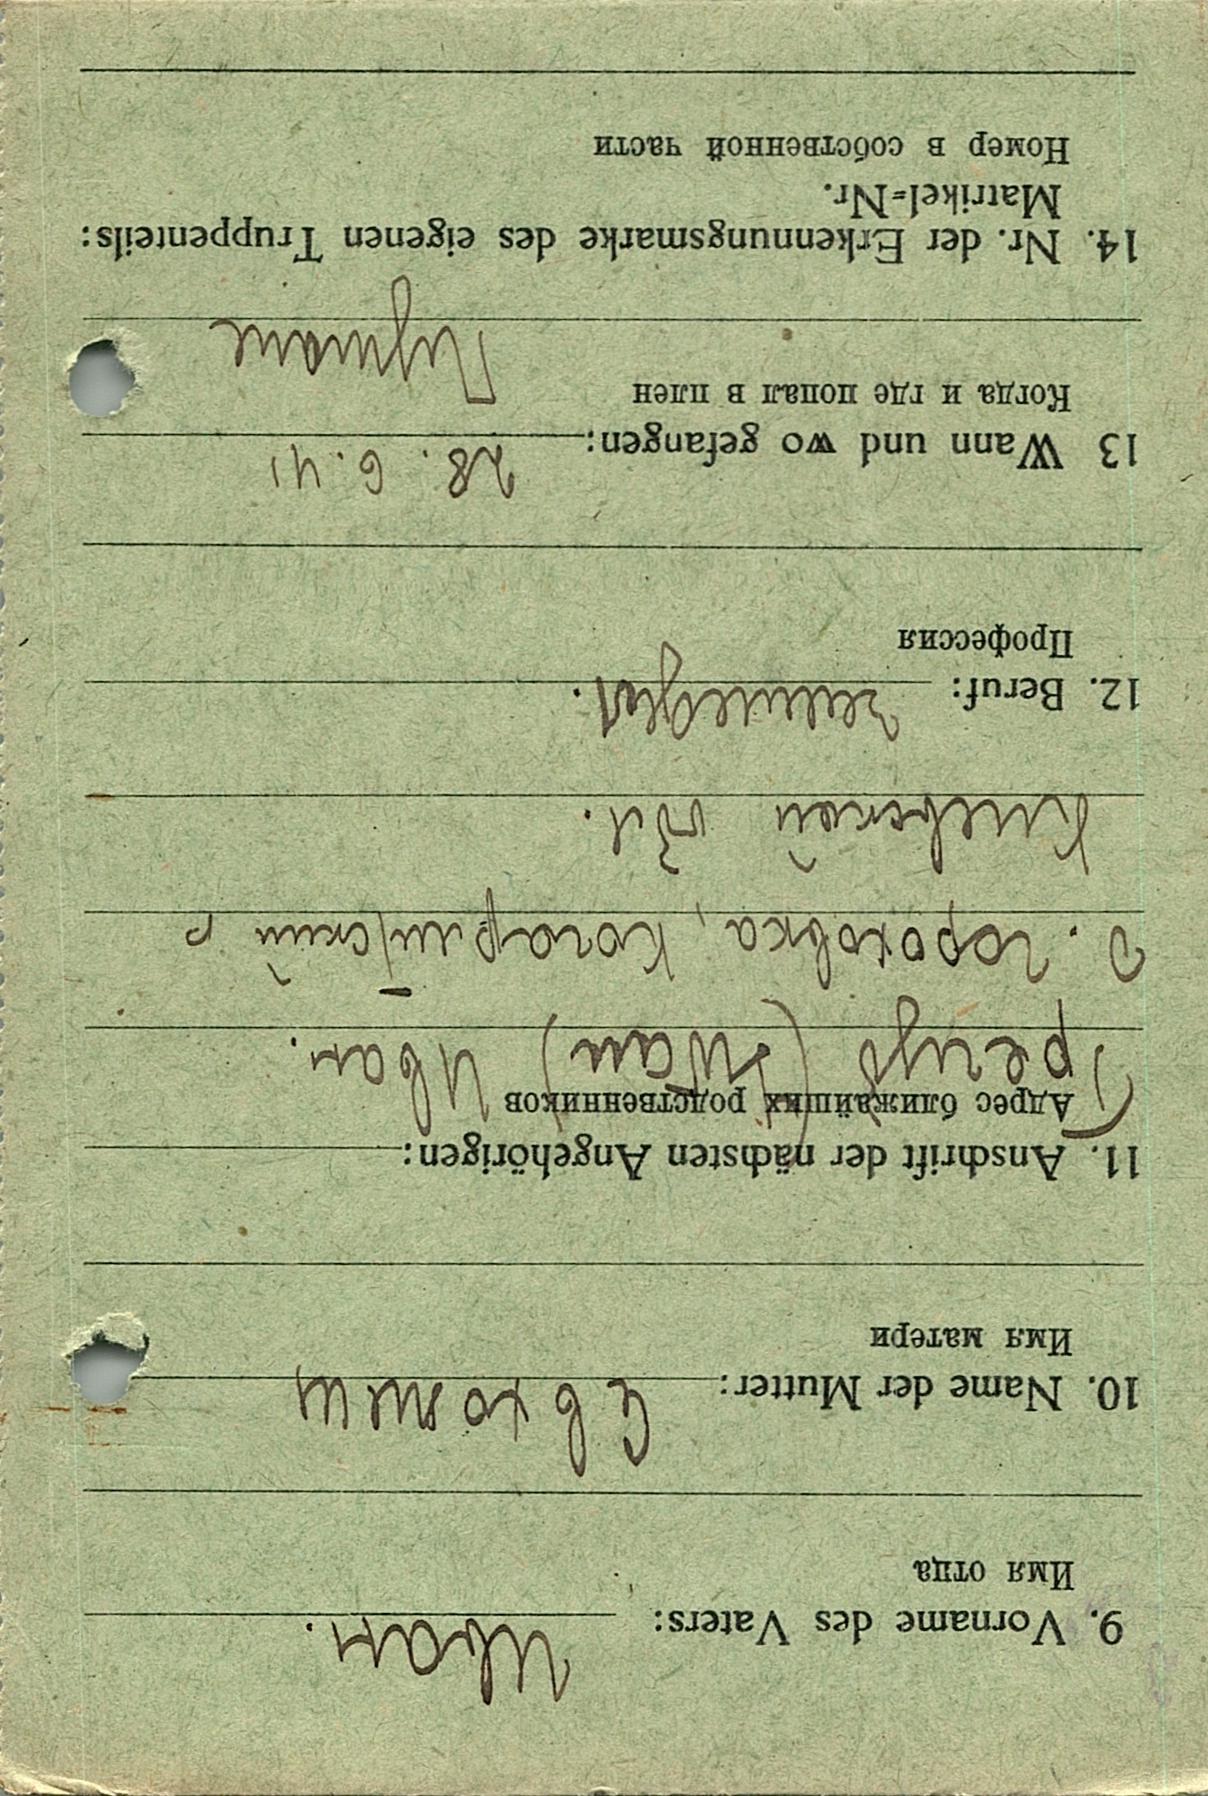 9. Vorname des Vaters: Иван.
Имя отца
10. Name der Mutter:
Имя матери
11. Anschrift der nächsten Angehörigen:
Адрес ближайших родственников
Иван.
д. Гороховка, Кагарлыцкий р
Киевской обл.
12. Beruf: земледел.
Профессия
13 Wann und wo gefangen: 28. 6. 41
Когда и где попал в плен
14. Nr. der Erkennungsmarke des eigenen Truppenteils:
Matrikel=Nr.
Номер в собственной части